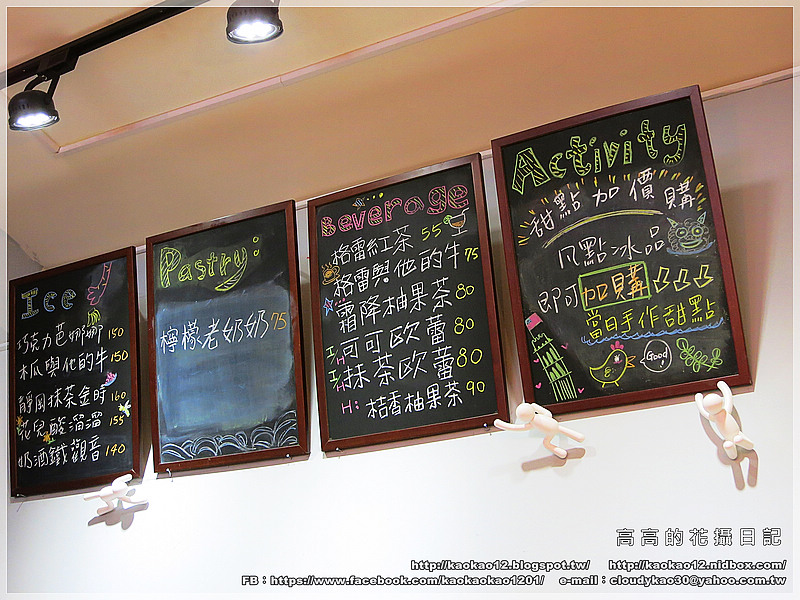 Ice
巧克力芭娜娜 150
木瓜與他的牛 150
靜岡抹茶金時 160
花兒酸溜溜 155
奶酒鐵觀音 140
Pastry:
檸檬老奶奶 75
Beverage
格雷紅茶 55
格雷與他的牛 75
霜降柚果茶 80
可可歐蕾 80
抹茶歐蕾 80
H: 桔香柚果茶 90
Activity
甜點加價購
凡點冰品
即可加購
當日手作甜點
Good
高高的花攝日記
http://kaokao12.blogspot.tw/ http://kaokao12.nidbox.com/
FB：https://www.facebook.com/kaokaokao1201/ e-mail：cloudykao30@yahoo.com.tw